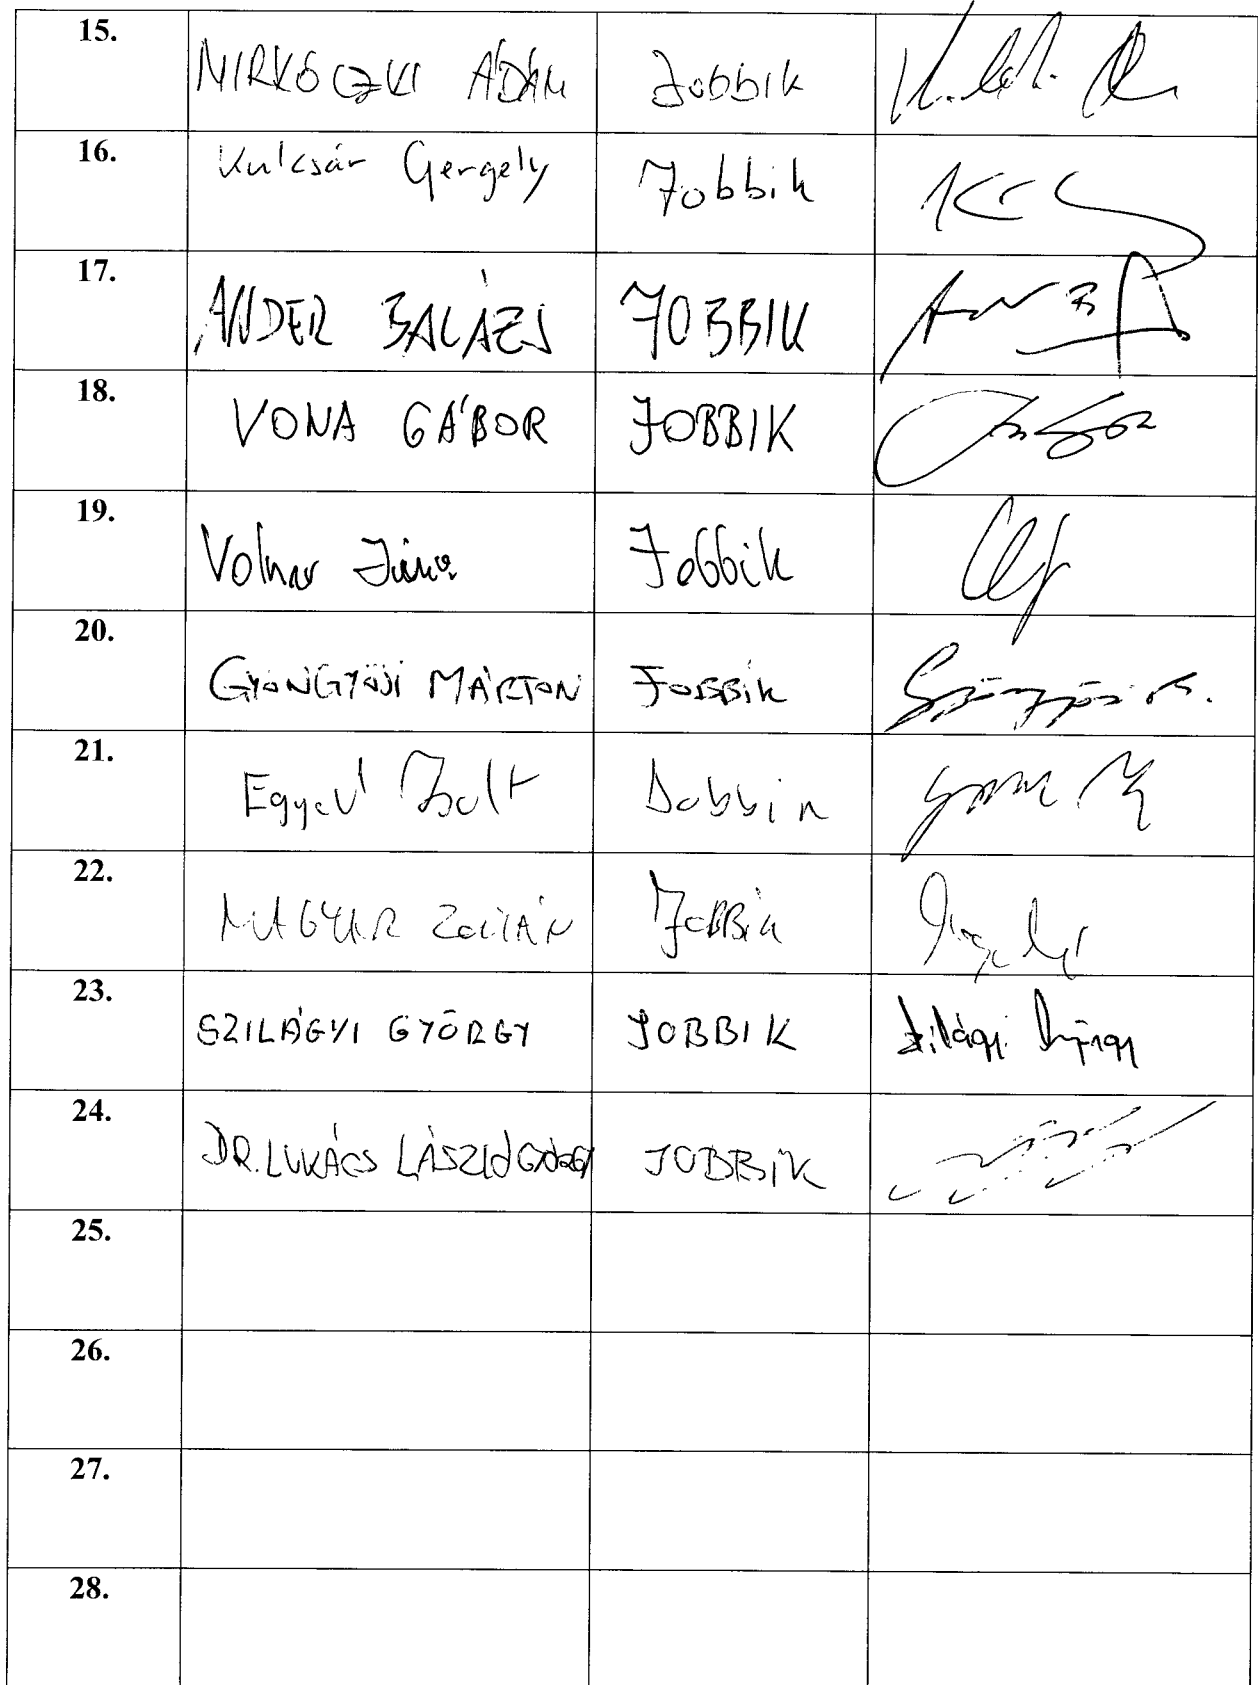 15. MIRKÓCZKI ÁDÁM Jobbik
16. Kulcsár Gergely Jobbik
17. ANDER BALÁZS JOBBIK
18. VONA GÁBOR JOBBIK
19. Volner János Jobbik
20. GYÖNGYÖSI MÁRTON JOBBIK
21. Egyed Zsolt Jobbik
22. MAGYAR ZOLTÁN JOBBIK
23. SZILÁGYI GYÖRGY JOBBIK Szilágyi György
24. DR. LUKÁCS LÁSZLÓ GYÖRGY JOBBIK
25.
26.
27.
28.